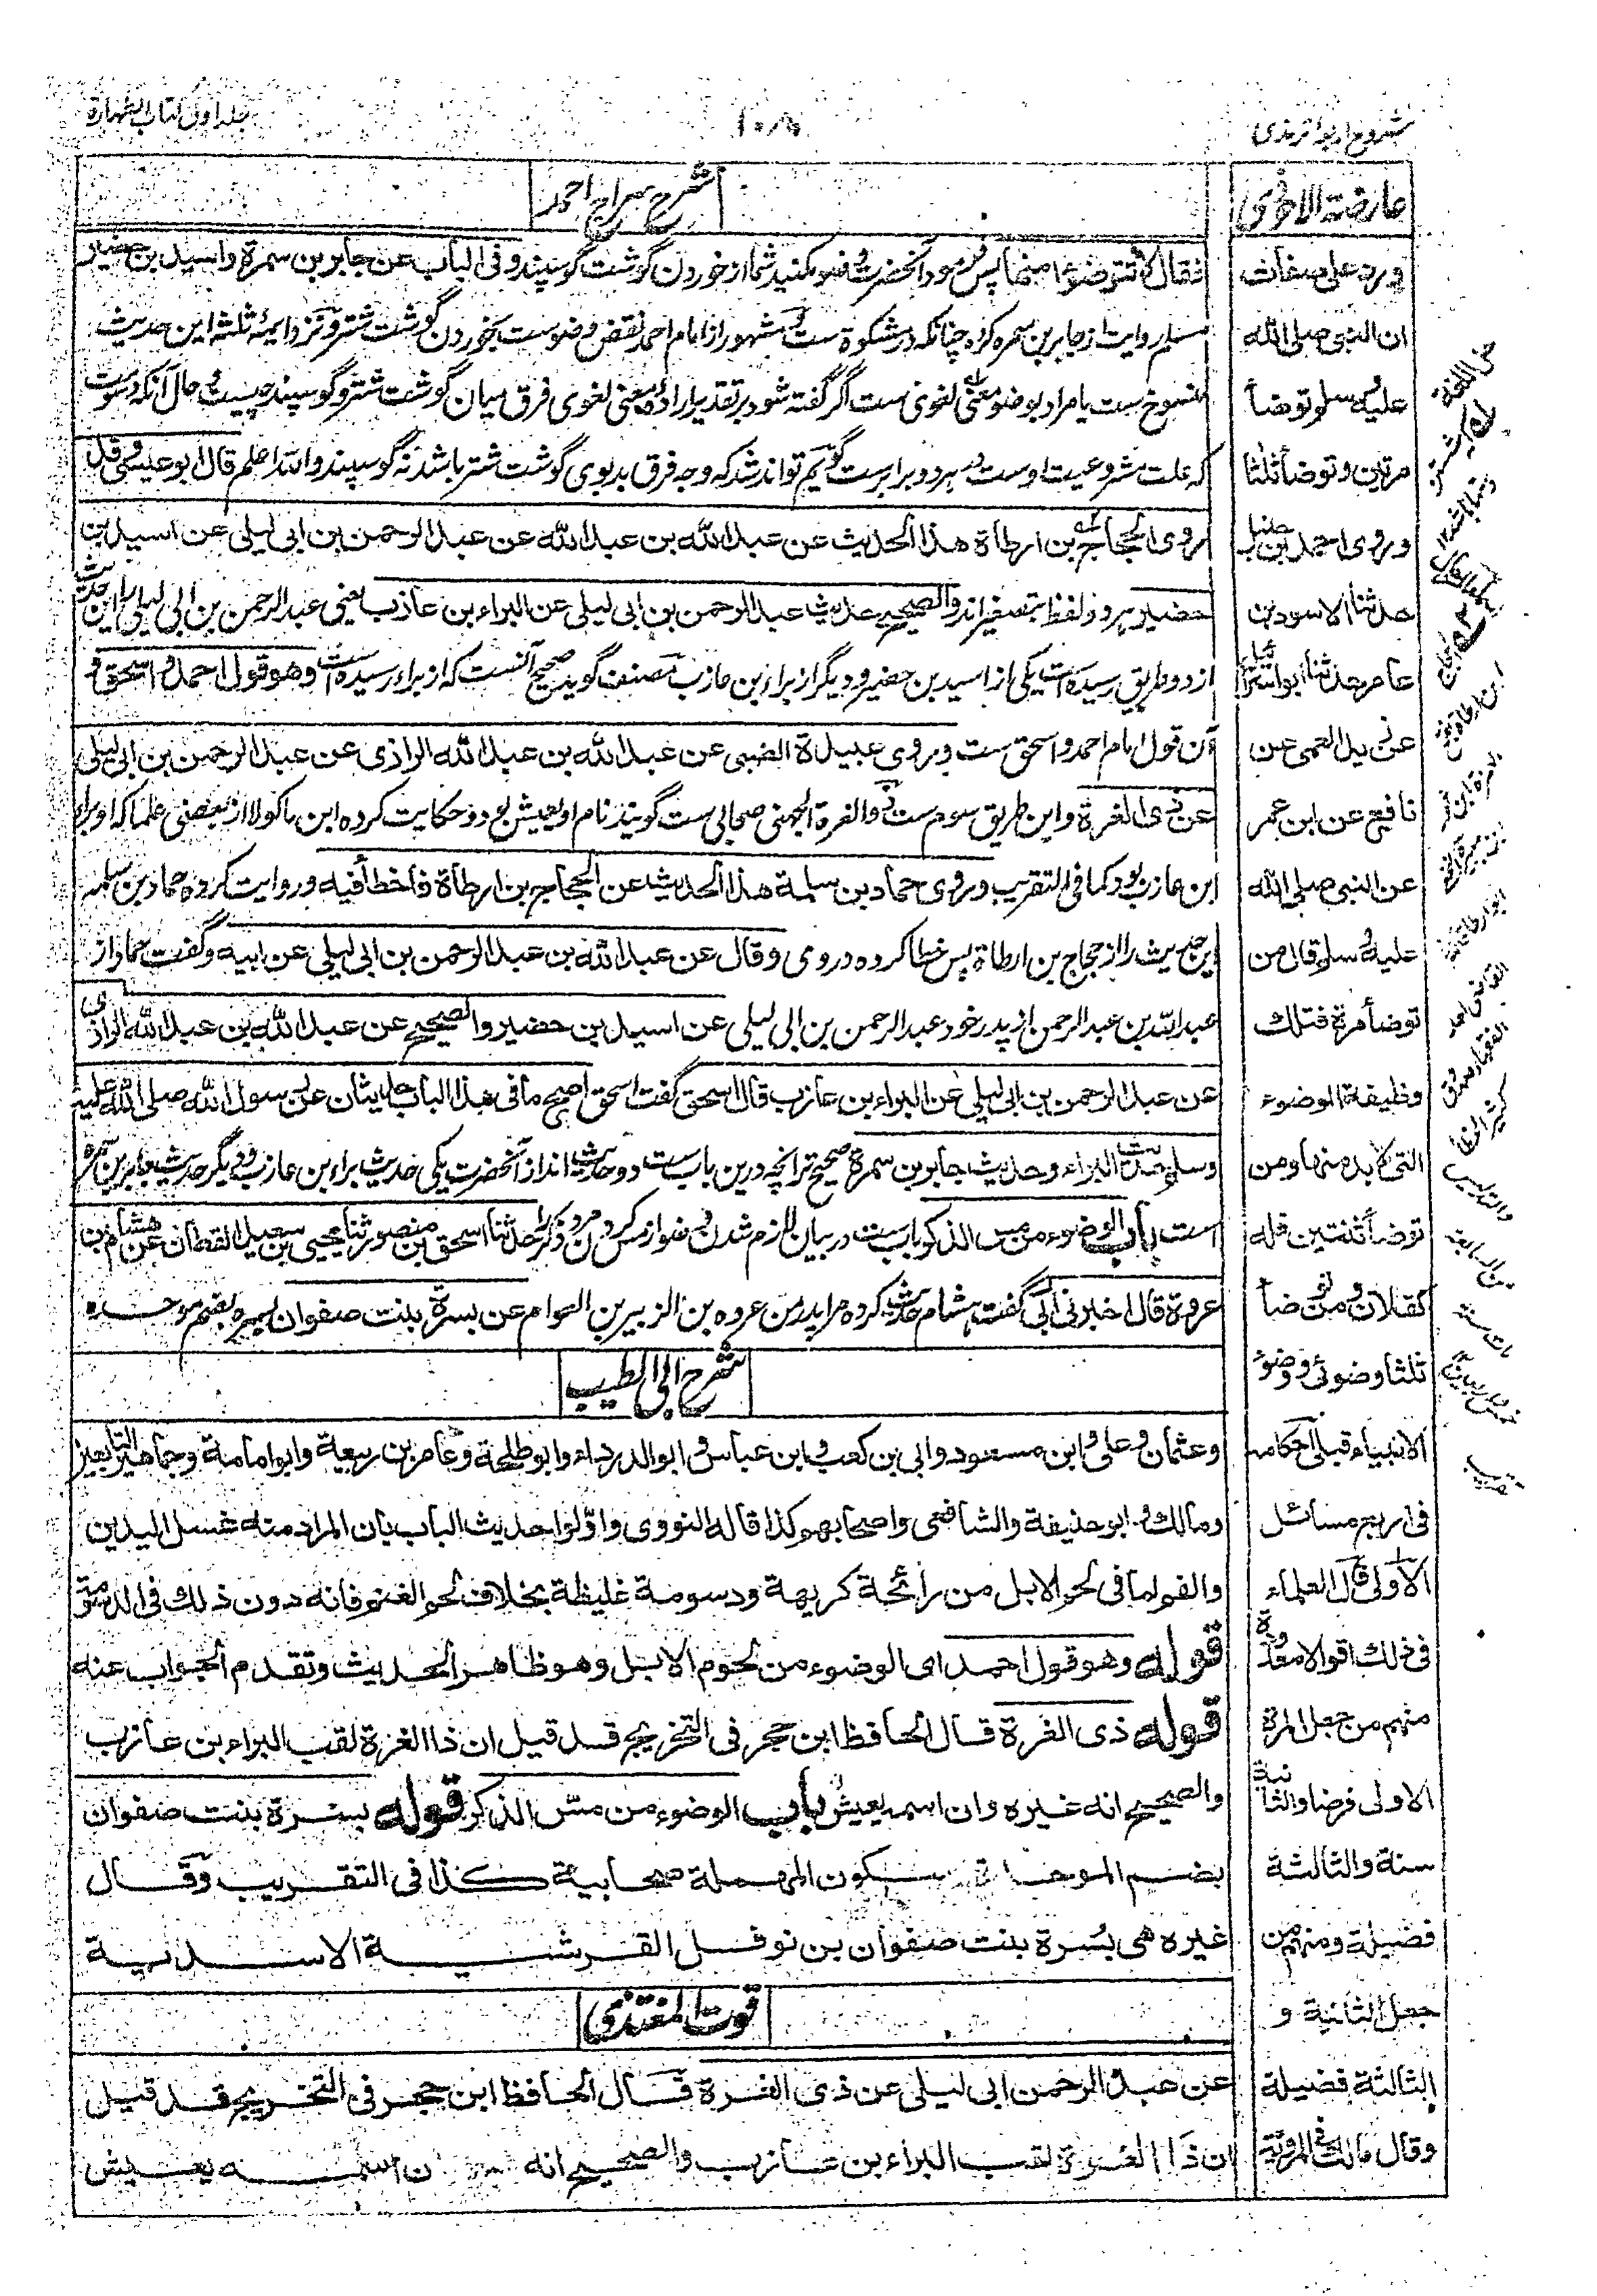 شروح اربعہ ترمذی
۱۰۸
جلد اول کتاب الطهارة
عارضة الاحوذی
ورد علی صفات
ان النبی صلی الله
علیه وسلم توضأ
مرتین وتوضأ ثلثا
وروی احمد بن حنبل
حدثنا الاسود بن
عامر حدثنا ابو اسرائیل
عن زید العمی عن
نافع عن ابن عمر
عن النبی صلی الله
علیه وسلم قال من
توضأ مرة فتلك
وظیفة الوضوء
التی لا بد منها ومن
توضأ ثنتین فله
کفلان ومن توضأ
ثلثا وضوئی ووضوء
الانبیاء قبلی احکامه
فی اربع مسائل
الاولی قال العلماء
فی ذلك اقوالا معدودة
منهم من جعل المرة
الاولی فرضا والثانیة
سنة والثالثة
فضیلة ومنهم من
جعل الثانیة و
الثالثة فضیلة
وقال مالك فی المرویة
شرح سراج احمد
فقال لا تتوضؤا منها پس فرمود آنحضرت وضو مکنید شما از خوردن گوشت گوسپند وفی الباب عن جابر بن سمرة واسید بن حضیر
مسلم روایت از جابر بن سمره کرده چنانکه در مشکوة ست و مشهور از امام احمد نقض وضوست بخوردن گوشت شتر و نزد ایمه ثلثه این حدیث
منسوخ ست یا مراد بوضو معنی لغوی ست اگر گفته شود بر تقدیر اراده معنی لغوی فرق میان گوشت شتر و گوسپند چیست و حال آنکه دسومت
که علت مشروعیت اوست در هر دو برابر ست گویم تواند شد که وجه فرق بدبوی گوشت شتر باشد نه گوسپند والله اعلم قال ابو عیسی وقد
روی الحجاج بن ارطاة هذا الحدیث عن عبد الله بن عبد الله عن عبد الرحمن بن ابی لیلی عن اسید بن
حضیر هر دو لفظ بتصغیر اند والصحیح حدیث عبد الرحمن بن ابی لیلی عن البراء بن عازب یعنی عبد الرحمن بن ابی لیلی را این حدیث
از دو طریق رسیده است یکی از اسید بن حضیر و دیگر از براء بن عازب مصنف گوید صحیح آنست که از براء رسیده است وهو قول احمد واسحق و
آن قول امام احمد و اسحق ست وروی عبیدة الضبی عن عبد الله بن عبد الله الرازی عن عبد الرحمن بن ابی لیلی
عن ذی الغرة و این طریق سوم ست والغرة الجهنی صحابی ست گویند نام او یعیش بود و حکایت کرده ابن ماکولا از بعضی علما که او براء
ابن عازب بود کما فی التقریب وروی حماد بن سلمة هذا الحدیث عن الحجاج بن ارطاة فاخطأ فیه و روایت کرده حماد بن سلمه
این حدیث را از حجاج بن ارطاة پس خطا کرده در وی وقال عن عبد الله بن عبد الرحمن بن ابی لیلی عن ابیه و گفت حماد از
عبد الله بن عبد الرحمن از پدر خود عبد الرحمن بن ابی لیلی عن اسید بن حضیر والصحیح عن عبد الله بن عبد الله الرازی
عن عبد الرحمن بن ابی لیلی عن البراء بن عازب قال اسحق گفت اسحق اصح ما فی هذا الباب حدیثان عن رسول الله صلی الله علیه
وسلم حدیث البراء وحدیث جابر بن سمرة صحیح تر آنچه درین باب ست دو حدیث اند از آنحضرت یکی حدیث براء بن عازب و دیگر حدیث جابر بن سمره
است باب الوضوء من مس الذکر باب ست در بیان لازم شدن وضو از مس کردن مرد ذکر را حدثنا اسحق بن منصور ثنا یحیی بن سعید القطان عن هشام بن
عروة قال اخبرنی ابی گفت هشام حدیث کرده مرا پدر من عروه بن الزبیر بن العوام عن بسرة بنت صفوان بسره بضم موحده
شرح ابی الطیب
وعثمان وعلی وابن مسعود وابی بن کعب وابن عباس وابو الدرداء وابو طلحة وعامر بن ربیعة وابو امامة وجماهیر التابعین
ومالك وابو حنیفة والشافعی واصحابهم کذا قاله النووی واوّلوا حدیث الباب بان المراد منه غسل الیدین
والفم لما فی لحم الابل من رائحة کریهة ودسومة غلیظة بخلاف لحم الغنم فانه دون ذلك فی الدسومة
قوله وهو قول احمد ای الوضوء من لحوم الابل وهو ظاهر الحدیث وتقدم الجواب عنه
قوله ذی الغرة قال الحافظ ابن حجر فی التخریج قد قیل ان ذا الغرة لقب البراء بن عازب
والصحیح انه غیره وان اسمه یعیش باب الوضوء من مسّ الذکر قوله بسرة بنت صفوان
بضم الموحدة وسکون المهملة صحابیة کذا فی التقریب وقال
غیره هی بُسرة بنت صفوان بن نوفل القرشیة الاسدیة
قوت المغتذی
عن عبد الرحمن بن ابی لیلی عن ذی الغرة قال الحافظ ابن حجر فی التخریج قد قیل
ان ذا الغرة لقب البراء بن عازب والصحیح انه ان اسمه یعیش